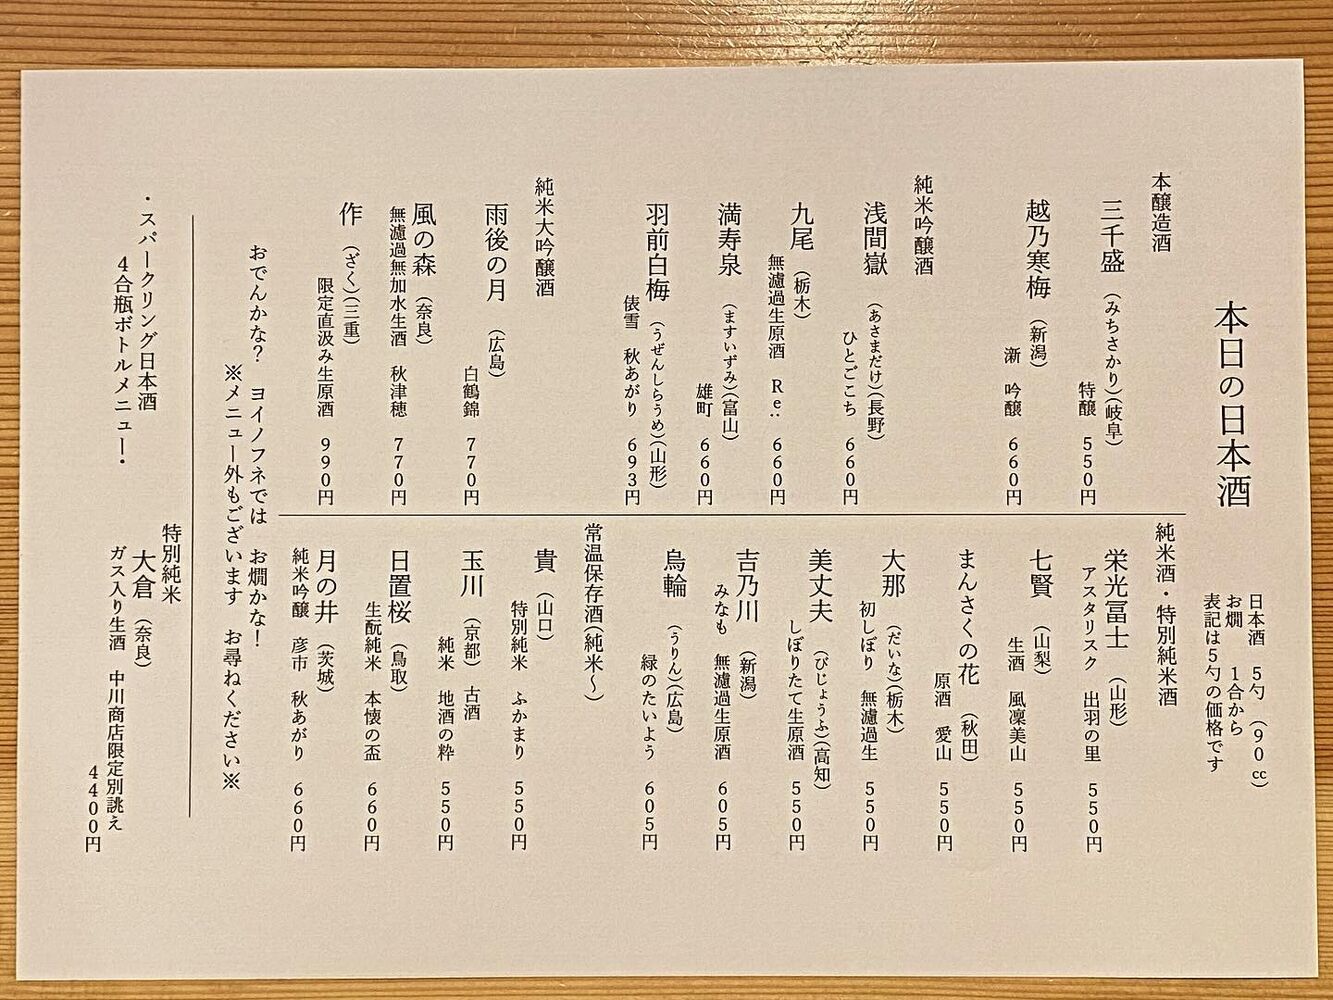 本日の日本酒
日本酒 5勺 (90cc)
お燗 1合から
表記は5勺の価格です
本醸造酒
三千盛 (みちさかり)(岐阜)
特醸 550円
越乃寒梅 (新潟)
漸 吟醸 660円
純米吟醸酒
浅間嶽 (あさまだけ)(長野)
ひとごこち 660円
九尾 (栃木)
無濾過生原酒 Re:. 660円
満寿泉 (ますいずみ)(富山)
雄町 660円
羽前白梅 (うぜんしらうめ)(山形)
俵雪 秋あがり 693円
純米大吟醸酒
雨後の月 (広島)
白鶴錦 770円
風の森 (奈良)
無濾過無加水生酒 秋津穂 770円
作 (ざく)(三重)
限定直汲み生原酒 990円
純米酒・特別純米酒
栄光冨士 (山形)
アスタリスク 出羽の里 550円
七賢 (山梨)
生酒 風凜美山 550円
まんさくの花 (秋田)
原酒 愛山 550円
大那 (だいな)(栃木)
初しぼり 無濾過生 550円
美丈夫 (びじょうふ)(高知)
しぼりたて生原酒 550円
吉乃川 (新潟)
みなも 無濾過生原酒 605円
烏輪 (うりん)(広島)
緑のたいよう 605円
常温保存酒(純米~)
貴 (山口)
特別純米 ふかまり 550円
玉川 (京都) 古酒
純米 地酒の粋 550円
日置桜 (鳥取)
生酛純米 本懐の盃 660円
月の井 (茨城)
純米吟醸 彦市 秋あがり 660円
おでんかな? ヨイノフネでは お燗かな!
※メニュー外もございます お尋ねください※
・スパークリング日本酒
4合瓶ボトルメニュー・
特別純米
大倉 (奈良)
ガス入り生酒 中川商店限定別誂え
4400円